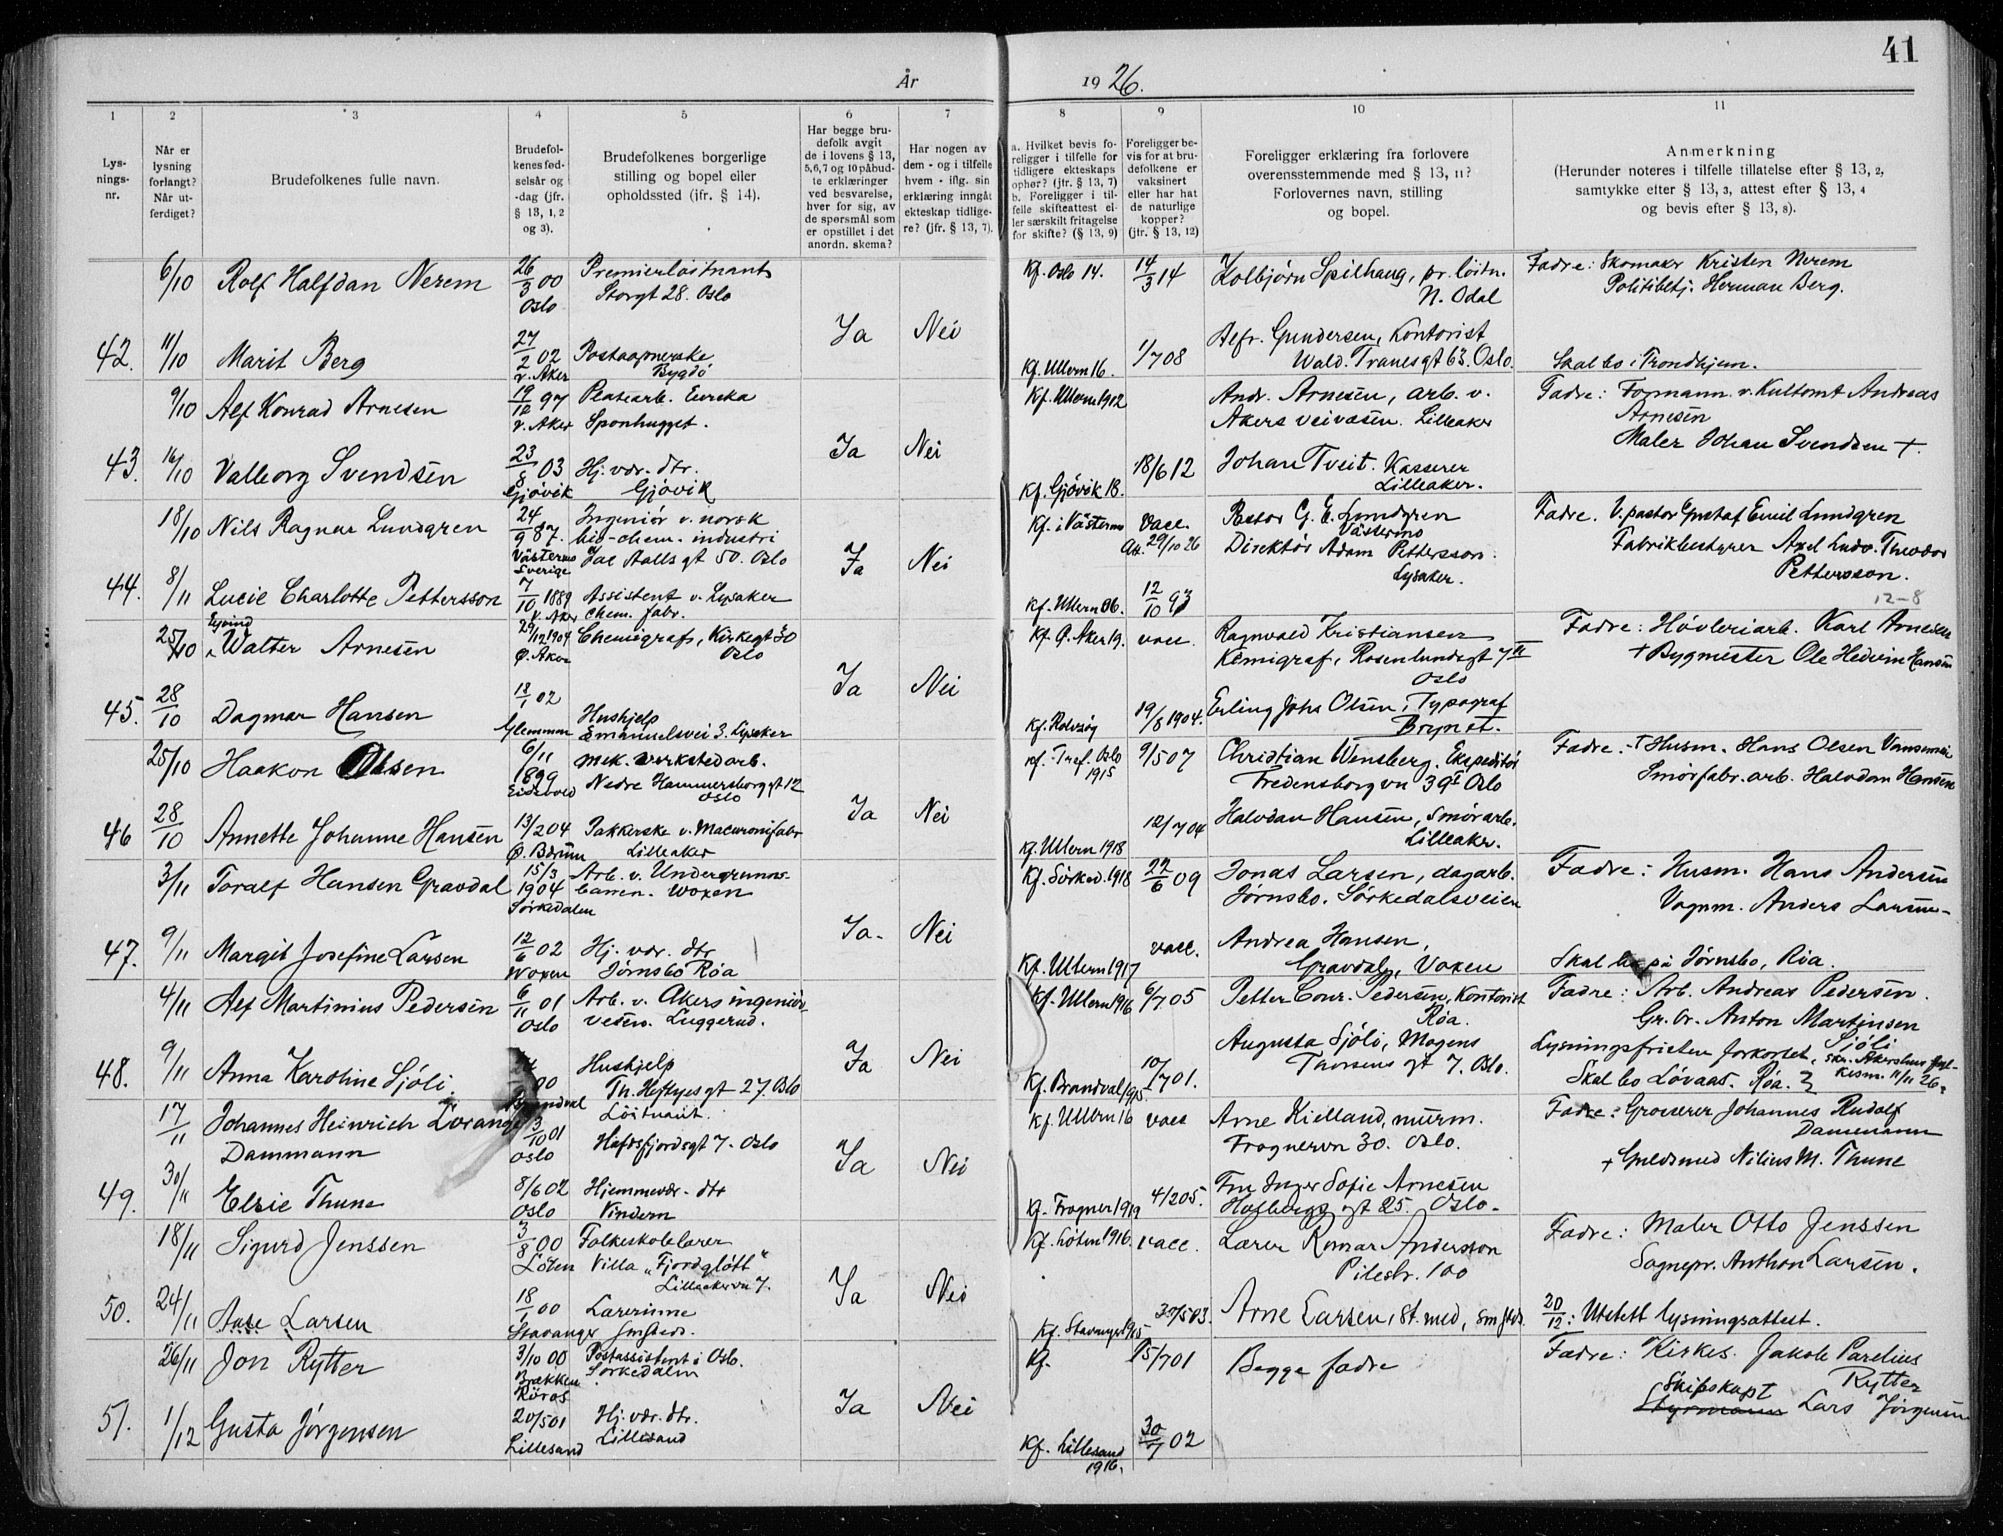 41
År 1926.
1 2 3 4 5 6 7 8 9 10 11
Lys-
nings-
nr.
Når er
lysning
forlangt?
Når ut-
ferdiget?
Brudefolkenes fulle navn.
Brudefol-
kenes fød-
selsår og
-dag (jfr.
§ 13, 1, 2
og 3).
Brudefolkenes borgerlige
stilling og bopel eller
opholdssted (jfr. § 14).
Har begge bru-
defolk avgit
de i lovens § 13,
5,6,7 og 10 påbud-
te erklæringer
ved besvarelse,
hver for sig, av
de spørsmål som
er opstillet i det
anordn. skema?
Har nogen av
dem - og i tilfelle
hvem - iflg. sin
erklæring inngåt
ekteskap tidlige-
re? (jfr. § 13, 7).
a. Hvilket bevis fo-
religger i tilfelle for
tidligere ekteskaps
ophør? (jfr. § 13, 7)
b. Foreligger i til-
felle skifteattest el-
ler særskilt fritagelse
for skifte? (§ 13, 9)
Foreligger be-
vis for at bru-
defolkene er
vaksinert
eller har hat
de naturlige
kopper?
(jfr. § 13, 12)
Foreligger erklæring fra forlovere
overensstemmende med § 13, 11?
Forlovernes navn, stilling
og bopel.
Anmerkning
(Herunder noteres i tilfelle tillatelse efter § 13, 2,
samtykke efter § 13, 3, attest efter § 13, 4
og bevis efter § 13, 8).
6/10 Rolf Halfdan Nerem 26/3 00 Oslo Premierløitnant Storgt 28. Oslo Kf. Oslo 14. 14/3 14 Kolbjørn Spilhaug, pr. løitn. N. Odal Fadre: Skomaker Kristen Nerem
Politibetj. Herman Berg.
42. 11/10 Marit Berg 27/2 02 v. Aker Postaapnerske Bygdö Ja Nei Kf. Ullern 16. 1/7 08 Alfr. Gundersen, Kontorist Wald. Tranesgt 63. Oslo. Skal bo i Trondhjem.
9/10 Alf Konrad Arnesen 19/12 97 v. Aker Platearb. Eureka Sponhugget. Kf. Ullern 1912 Andr. Arnesen, arb. v. Akers veivæsen. Lilleaker Fadre: Formann v. Kultomt Andreas
Arnesen
43. 16/10 Valborg Svendsen 23/8 03 Gjövik Hj. vær. dtr. Gjövik Ja Nei Kf. Gjövik 18. 18/6 12 Johan Tveit. Kasserer Lilleaker. Maler Johan Svendsen +.
18/10 Nils Ragnar Lundgren 24/9 87. Sverige Ingeniør v. norsk bio-chem. industri Jac Aalls gt 50. Oslo vacc. Att. 29/10 26 Pastor G. E. Lundgren Fadre. V. pastor Gustaf Emil Lundgren
44. 8/11 Lucie Charlotte Pettersson 7/10 1889 V. Aker Assistent v. Lysaker chem. fabr. Ja Nei Kf. Ullern 06. 12/10 93 Direktör Adam Pettersson. Lysaker. Fabrikbestyrer Axel Ludv. Theodor
Pettersson.
12-8
25/10 Eyvind Walter Arnesen 29/12 1904 Ø. Aker Chemigraf, Kirkegt 30 Oslo Kf. Ø. Aker 19. vacc. Ragnvald Kristiansen Kemigraf, Rosenlundsgt 7 III Oslo Fadre: Høvleriarb. Karl Arnesen
45. 28/10 Dagmar Hansen 18/1 02 Glemmen Hushjelp Emanuelsvei 3. Lysaker Ja Nei Kf. Rolvsøy 19/8 1904. Erling Johs Olsen, Typograf Brynst. + Bygmester Ole Hedvin Hansen
25/10 Haakon Olsen 6/11 1899 Eidsvold mek. verkstedarb. Nedre Hammersborggt 12 Oslo Kf. Tref. Oslo 1915 9/5 07 Christian Wensberg. Ekspeditør Fredensborgvn 39 I Oslo Fadre. + Husm. Hans Olsen
46 28/10 Annette Johanne Hansen 13/2 04 Ø. Bærum Pakkerske v. Macaronifabr Lilleaker Ja Nei Kf. Ullern 1918 12/7 04 Halvdan Hansen, Smörarb. Lilleaker. Smörfabr. arb. Halvdan Hansen
3/11 Toralf Hansen Gravdal 15/3 1904 Sörkedalen Arb. v. Undergrunns- banen. Woxen Kf. Sörked. 1918 22/6 09 Jonas Larsen, dagarb. Jørnsbo. Sörkedalsveien Fadre: Husm. Hans Andersen
47. 9/11 Margit Josefine Larsen 12/6 02 Woxen Hj. vær. dtr Jørnsbo Røa Ja. Nei Kf. Ullern 1917 vacc. Andrea Hansen, Gravdal, Voxen Vognm. Anders Larsen
Skal bo på Jørnsbo, Röa.
4/11 Alf Martinius Pedersen 6/11 01 Oslo Arb. v. Akers ingeniör- vesen. Luggerud. Kf. Ullern 1916 6/7 05 Petter Conr. Pedersen, Kontorist Røa. Fadre: Arb. Andreas Pedersen.
48. 9/11 Anna Karoline Sjöli 00 Brandval Hushjelp Th. Heftyesgt 27. Oslo Ja Nei Kf. Brandval 1915. 10/1701. Augusta Sjöli, Mogens Thorsens gt 7. Oslo. Gr. br. Anton Martinsen
Sjöli
Lysningsfristen forkortet, skr. Akershus fylkesm. 11/11 26.
Skal bo Lövaas. Röa.
17/11 Johannes Heinrich Lorange Dammann 3/10 01 Oslo Löitnant. Hafrsfjordsgt 7. Oslo Kf. Ullern 16 vacc Arne Kielland, murm. Frognervn 30. Oslo. Fadre: Grosserer Johannes Rudolf
Dammann
49. 30/11 Elsie Thune 8/6 02 Oslo Hjemmevær. dtr Vindern Ja Nei Kf. Frogner 1919 4/2 05. Fru Inger Sofie Arnesen Holbergs gt 25. Oslo. + Guldsmed Nilius M. Thune
18/11 Sigurd Jenssen 3/8 00 Löten Folkeskolelærer Villa „Fjordglött“ Lilleakervn 7. Kf. Löten 1916. vacc. Lærer Romar Andersson Pilestr. 100 Fadre: Maler Otto Jenssen
50. 24/11 Aase Larsen 18/1 00 Stavanger Lærerinne Smsteds. Ja Nei Kf. Stavanger 1915 30/5 03. Arne Larsen, st. med, smstds. Sognepr. Anthon Larsen.
20/12: Utstett lysningsattest.
26/11 Jon Rytter 3/10 00 Brækken Röros Postassistent i Oslo. Sorkedalen Kf. 15/7 01 Begge fadre Fadre: Kirkes. Jakob Parelius
Rytter
51. 1/12 Gusta Jörgensen 20/5 01 Lillesand Hj. vær. dtr. Lillesand Ja Nei Kf. Lillesand 1916. 30/7 02 Skibskapt Styrmann Lars Jörgensen